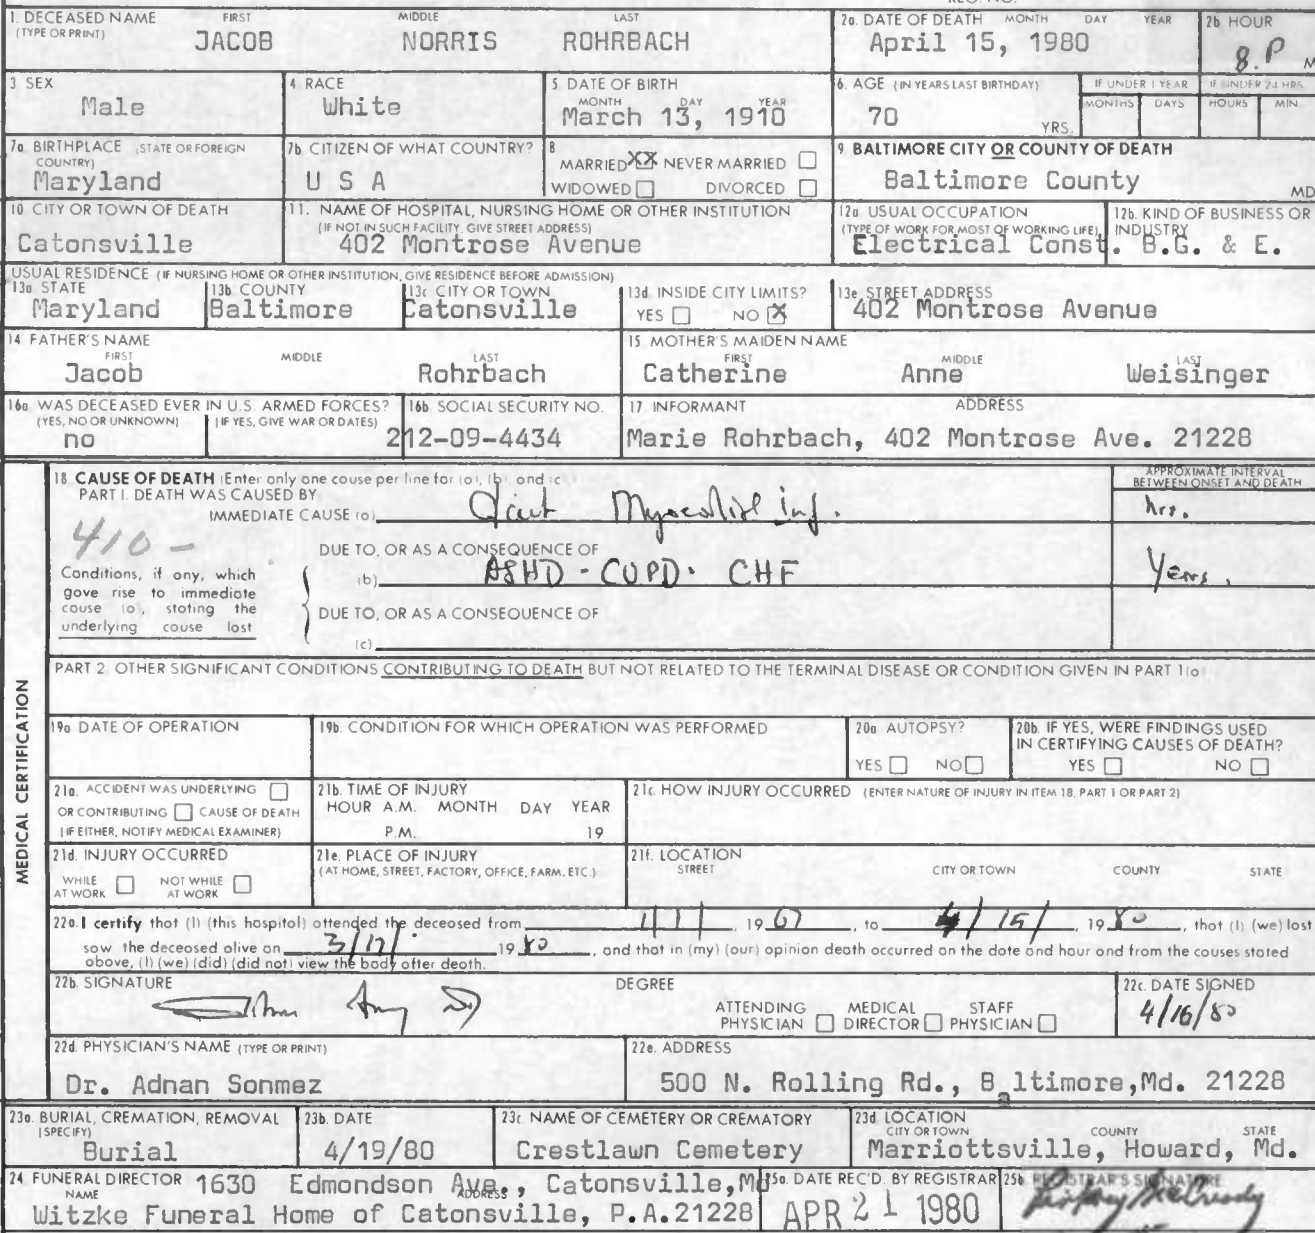 REG. NO.
1. DECEASED NAME FIRST MIDDLE LAST
(TYPE OR PRINT)
JACOB NORRIS ROHRBACH
2a. DATE OF DEATH MONTH DAY YEAR
April 15, 1980
2b HOUR
8.P M
3 SEX
Male
4 RACE
White
5 DATE OF BIRTH
MONTH DAY YEAR
March 13, 1910
6. AGE (IN YEARS LAST BIRTHDAY)
70 YRS.
IF UNDER 1 YEAR
MONTHS DAYS
IF UNDER 24 HRS.
HOURS MIN
7a. BIRTHPLACE (STATE OR FOREIGN
COUNTRY)
Maryland
7b. CITIZEN OF WHAT COUNTRY?
U S A
8
MARRIED XX NEVER MARRIED
WIDOWED DIVORCED
9 BALTIMORE CITY OR COUNTY OF DEATH
Baltimore County MD
10 CITY OR TOWN OF DEATH
Catonsville
11. NAME OF HOSPITAL, NURSING HOME OR OTHER INSTITUTION
(IF NOT IN SUCH FACILITY, GIVE STREET ADDRESS)
402 Montrose Avenue
12a USUAL OCCUPATION
(TYPE OF WORK FOR MOST OF WORKING LIFE)
Electrical Const.
12b. KIND OF BUSINESS OR
INDUSTRY
B.G. & E.
USUAL RESIDENCE (IF NURSING HOME OR OTHER INSTITUTION, GIVE RESIDENCE BEFORE ADMISSION)
13a. STATE
Maryland
13b COUNTY
Baltimore
13c CITY OR TOWN
Catonsville
13d. INSIDE CITY LIMITS?
YES NO X
13e. STREET ADDRESS
402 Montrose Avenue
14 FATHER'S NAME
FIRST MIDDLE LAST
Jacob Rohrbach
15 MOTHER'S MAIDEN NAME
FIRST MIDDLE LAST
Catherine Anne Weisinger
16a WAS DECEASED EVER IN U.S. ARMED FORCES?
(YES, NO OR UNKNOWN) (IF YES, GIVE WAR OR DATES)
no
16b SOCIAL SECURITY NO.
212-09-4434
17 INFORMANT ADDRESS
Marie Rohrbach, 402 Montrose Ave. 21228
MEDICAL CERTIFICATION
18 CAUSE OF DEATH (Enter only one cause per line for (a), (b), and (c)
PART I. DEATH WAS CAUSED BY
APPROXIMATE INTERVAL
BETWEEN ONSET AND DEATH
IMMEDIATE CAUSE (a) inf. hrs.
410 -
DUE TO, OR AS A CONSEQUENCE OF
(b) ASHD - COPD. CHF Years.
Conditions, if any, which
gave rise to immediate
cause (a), stating the
underlying cause last
DUE TO, OR AS A CONSEQUENCE OF
(c)
PART 2 OTHER SIGNIFICANT CONDITIONS CONTRIBUTING TO DEATH BUT NOT RELATED TO THE TERMINAL DISEASE OR CONDITION GIVEN IN PART 1(a)
19a DATE OF OPERATION
19b. CONDITION FOR WHICH OPERATION WAS PERFORMED
20a AUTOPSY?
YES NO
20b. IF YES, WERE FINDINGS USED
IN CERTIFYING CAUSES OF DEATH?
YES NO
21a. ACCIDENT WAS UNDERLYING
OR CONTRIBUTING CAUSE OF DEATH
(IF EITHER, NOTIFY MEDICAL EXAMINER)
21b. TIME OF INJURY
HOUR A.M. MONTH DAY YEAR
P.M. 19
21c. HOW INJURY OCCURRED (ENTER NATURE OF INJURY IN ITEM 18, PART 1 OR PART 2)
21d. INJURY OCCURRED
WHILE AT WORK NOT WHILE AT WORK
21e. PLACE OF INJURY
(AT HOME, STREET, FACTORY, OFFICE, FARM, ETC.)
21f. LOCATION
STREET CITY OR TOWN COUNTY STATE
22a. I certify that (I) (this hospital) attended the deceased from 1/1/ 1967, to 4/15/ 1980, that (I) (we) last
saw the deceased alive on 3/17/ 1980, and that in (my) (our) opinion death occurred on the date and hour and from the causes stated
above, (I) (we) (did) (did not) view the body after death.
22b. SIGNATURE
DEGREE
ATTENDING PHYSICIAN MEDICAL DIRECTOR STAFF PHYSICIAN
22c. DATE SIGNED
4/16/80
22d. PHYSICIAN'S NAME (TYPE OR PRINT)
Dr. Adnan Sonmez
22e. ADDRESS
500 N. Rolling Rd., Baltimore,Md. 21228
23a. BURIAL, CREMATION, REMOVAL
(SPECIFY)
Burial
23b. DATE
4/19/80
23c. NAME OF CEMETERY OR CREMATORY
Crestlawn Cemetery
23d LOCATION
CITY OR TOWN COUNTY STATE
Marriottsville, Howard, Md.
24 FUNERAL DIRECTOR 1630 Edmondson Ave., Catonsville,Md
NAME ADDRESS
Witzke Funeral Home of Catonsville, P.A.21228
25a. DATE REC'D. BY REGISTRAR
APR 21 1980
25b REGISTRAR'S SIGNATURE